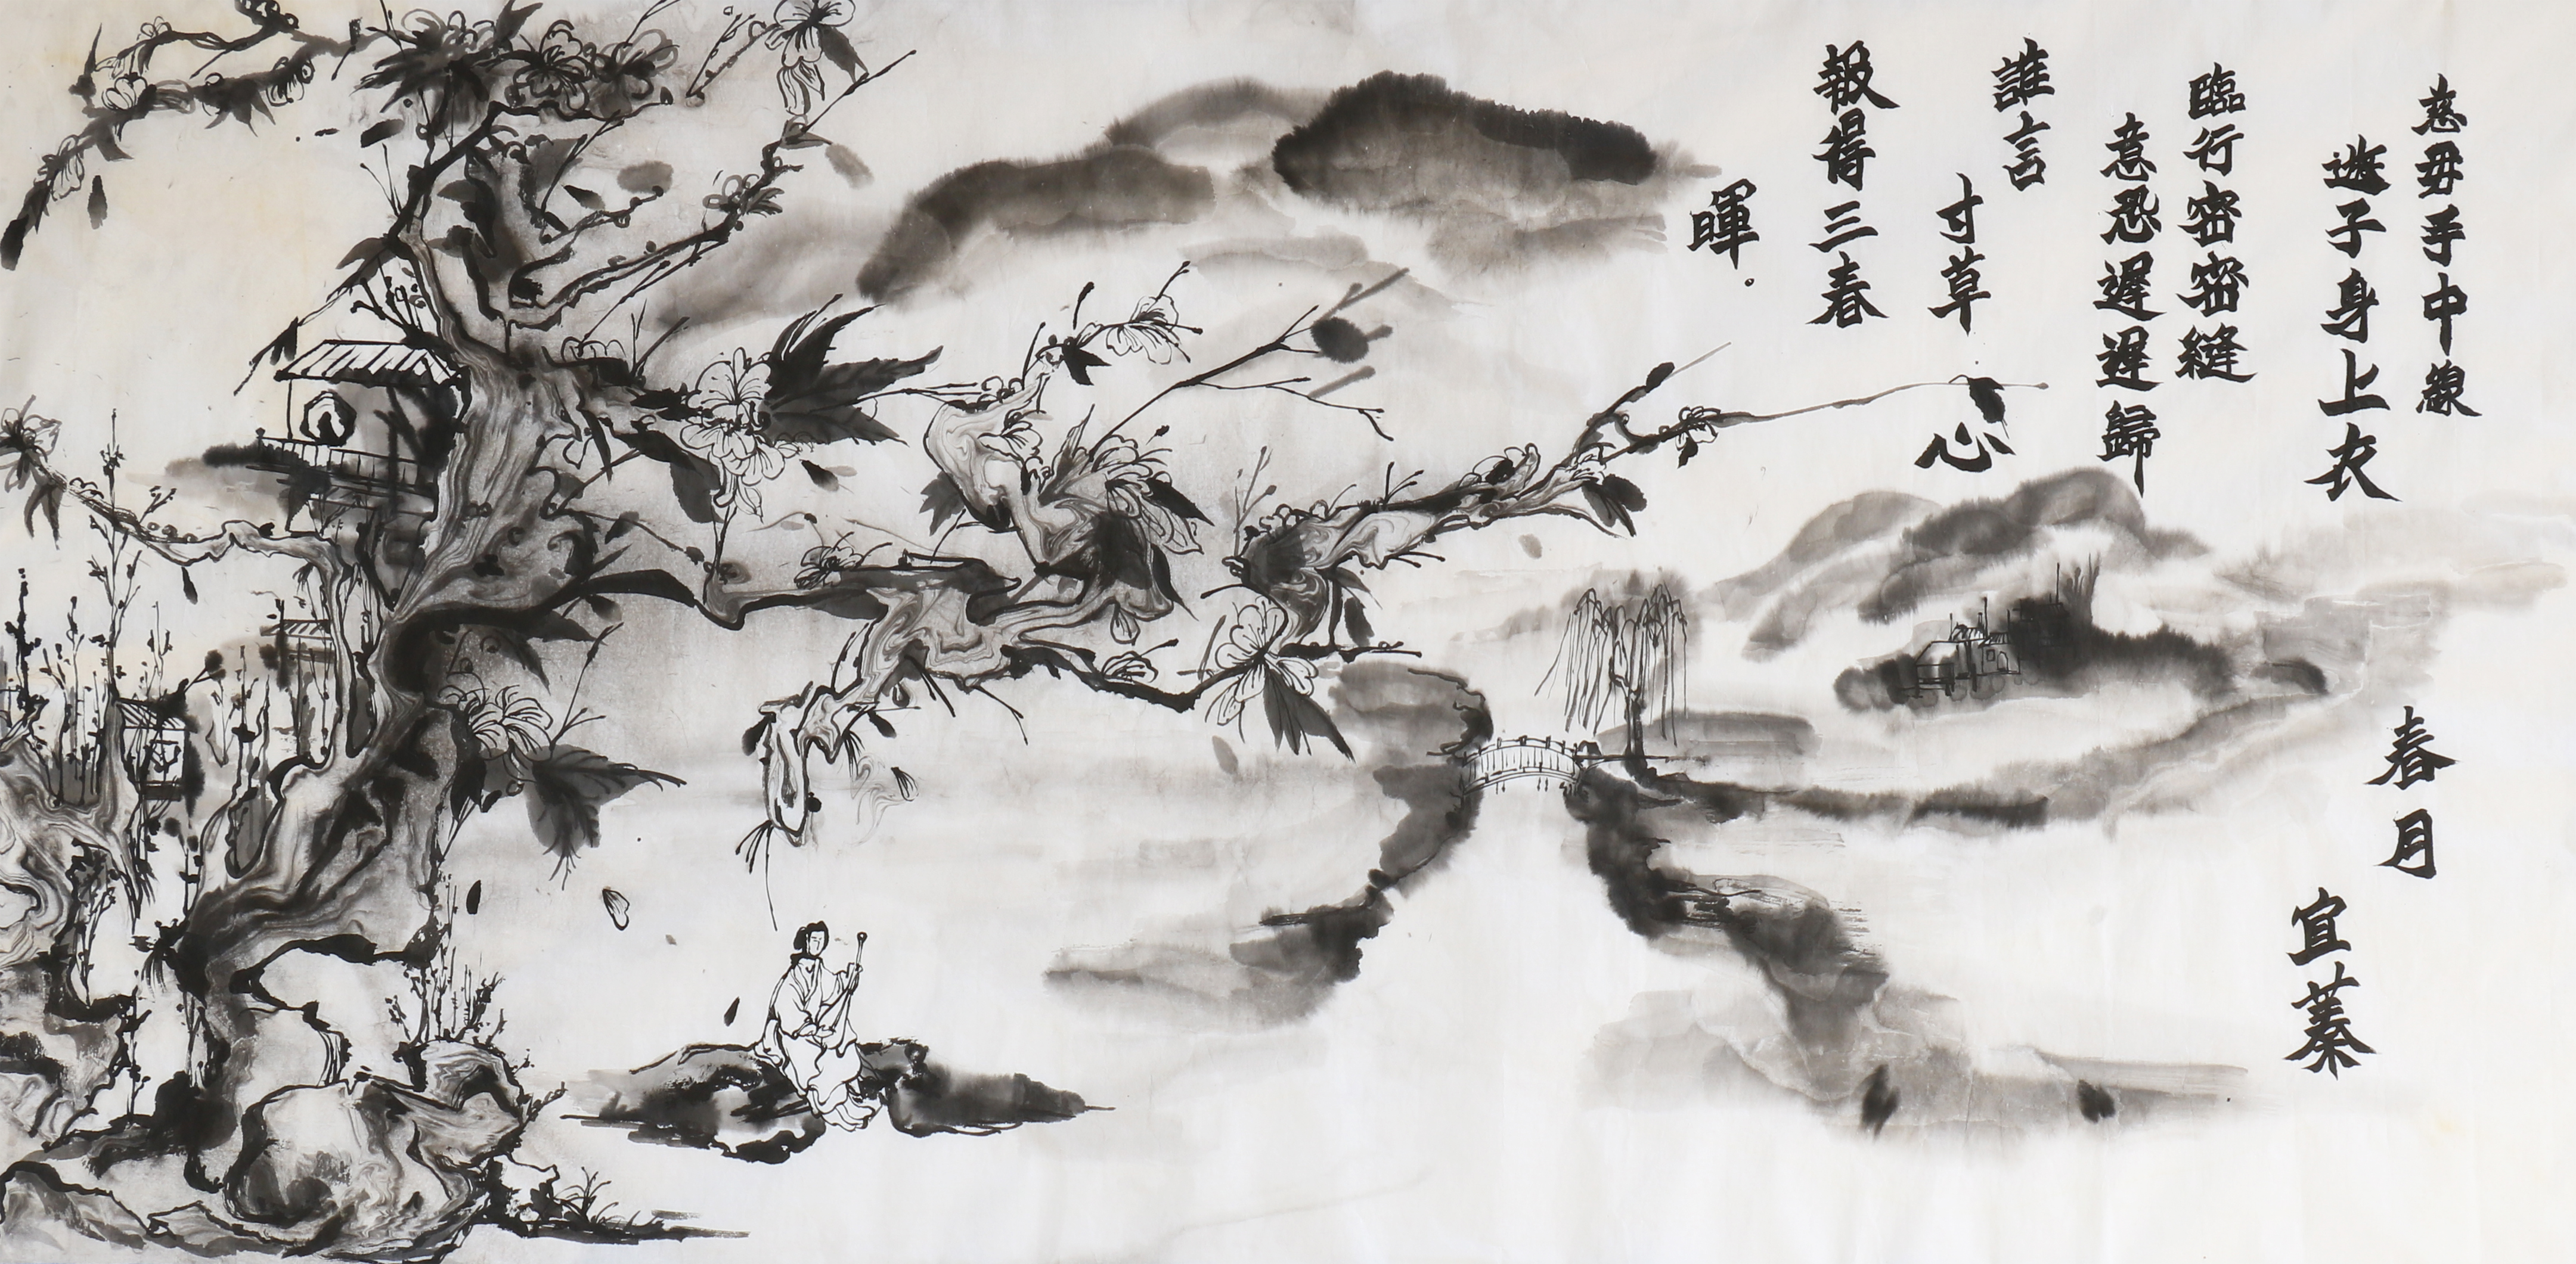 慈毋手中線
遊子身上衣
臨行密密縫
意恐遲遲歸
誰言
寸草
心
報得三春
暉。
春月
宜蓁